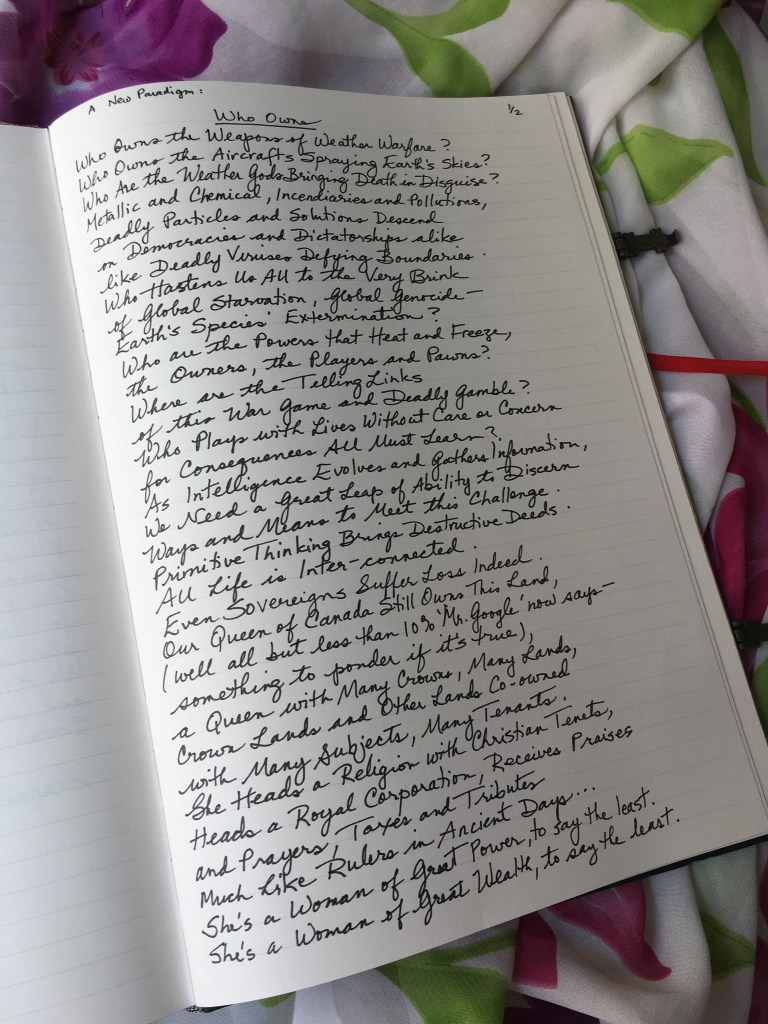 A New Paradigm:
1/2
Who Owns
Who Owns the Weapons of Weather Warfare?
Who Owns the Aircrafts Spraying Earth's Skies?
Who Are the Weather Gods Bringing Death in Disguise?
Metallic and Chemical, Incendiaries and Pollutions,
Deadly Particles and Solutions Descend
on Democracies and Dictatorships alike
like Deadly Viruses Defying Boundaries.
Who Hastens Us All to the Very Brink
of Global Starvation, Global Genocide—
Earth's Species' Extermination?
Who are the Powers that Heat and Freeze,
the Owners, the Players and Pawns?
Where are the Telling Links
of this War Game and Deadly Gamble?
Who Plays with Lives Without Care or Concern
for Consequences All Must Learn?
As Intelligence Evolves and gathers Information,
We Need a Great Leap of Ability to Discern
Ways and Means to Meet this Challenge.
Primitive Thinking Brings Destructive Deeds.
All Life is Inter-connected.
Even Sovereigns Suffer Loss Indeed.
Our Queen of Canada Still Owns This Land,
(well all but less than 10% 'Mr. Google' now says—
something to ponder if it's true),
a Queen with Many Crowns, Many Lands,
Crown Lands and Other Lands Co-owned
with Many Subjects, Many Tenants.
She Heads a Religion with Christian Tenets,
Heads a Royal Corporation, Receives Praises
and Prayers, Taxes and Tributes
Much Like Rulers in Ancient Days...
She's a Woman of Great Power, to say the least.
She's a Woman of Great Wealth, to say the least.